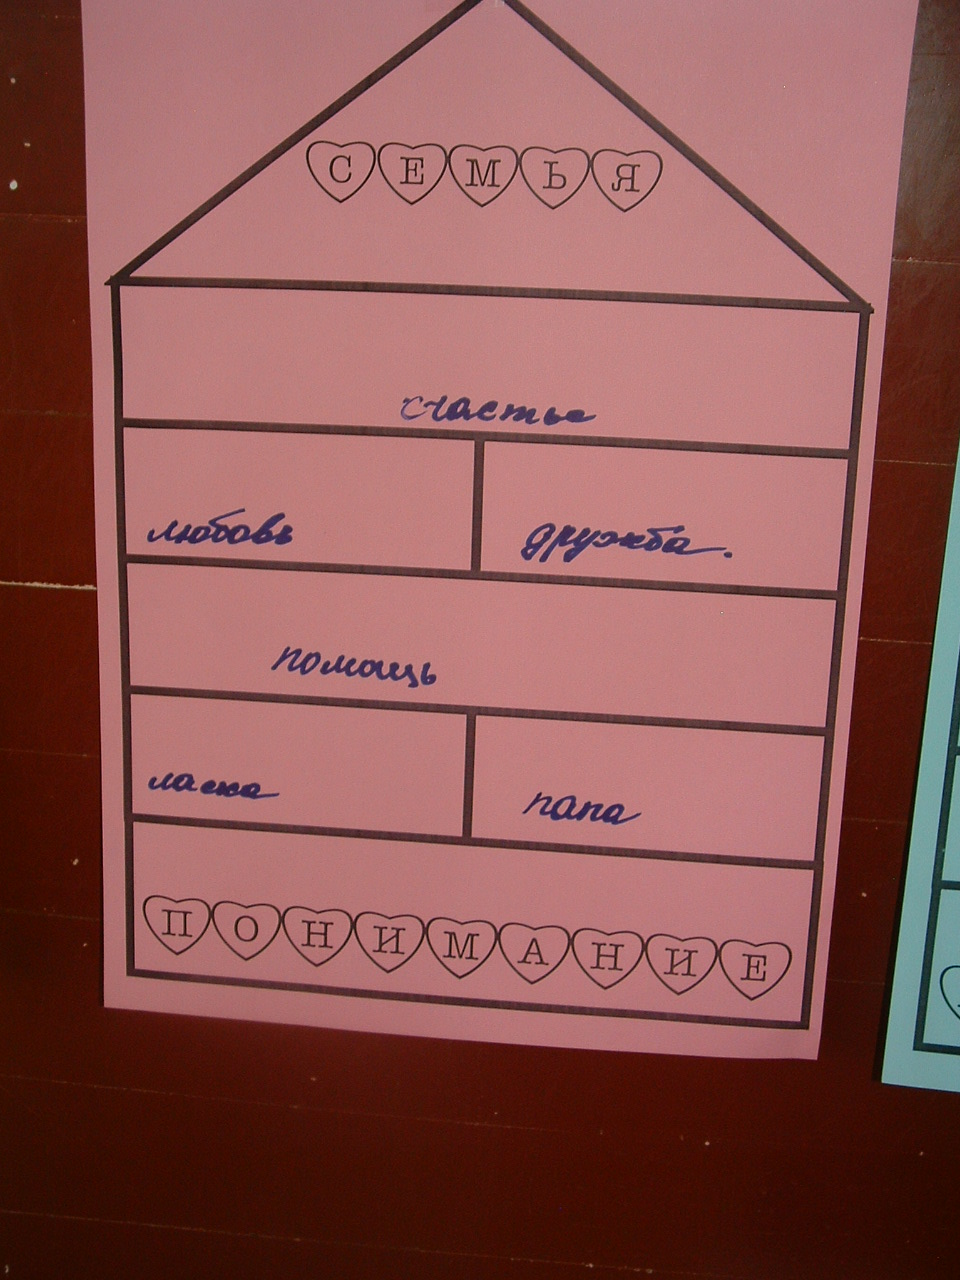 СЕМЬЯ
счастье
любовь дружба.
помощь
ласка папа
ПОНИМАНИЕ